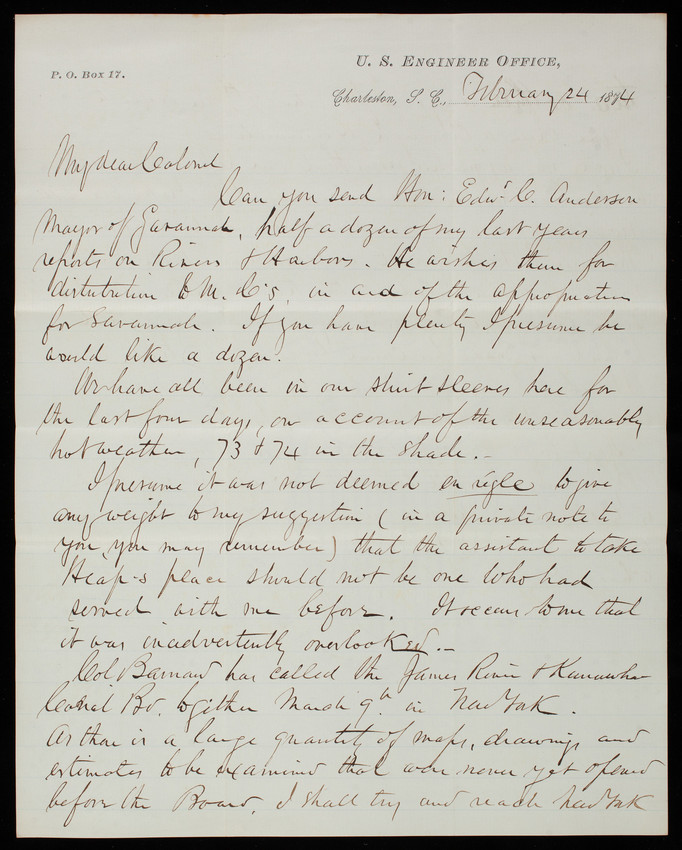 U. S. Engineer Office,
P. O. Box 17.
Charleston, S. C., February 24 1874
My dear Colonel
Can you send Hon: Edwd. C. Anderson
Mayor of Savannah, half a dozen of my last years
reports on Rivers & Harbors. He wishes them for
distribution to M. C's, in aid of the appropriation
for Savannah. If you have plenty I presume he
would like a dozen.
We have all been in our shirt sleeves here for
the last four days, on account of the unseasonably
hot weather, 73 & 74 in the shade. -
I presume it was not deemed en règle to give
any weight to my suggestion (in a private note to
you, you may remember) that the assistant to take
Heap's place should not be one who had
served with me before. It seems to me that
it was inadvertently overlooked. -
Col Barnard has called the James River & Kanawha
Canal Bd. together March 9th. in New York.
As there is a large quantity of maps, drawings and
estimates to be examined that were never yet opened
before the Board, I shall try and reach New York